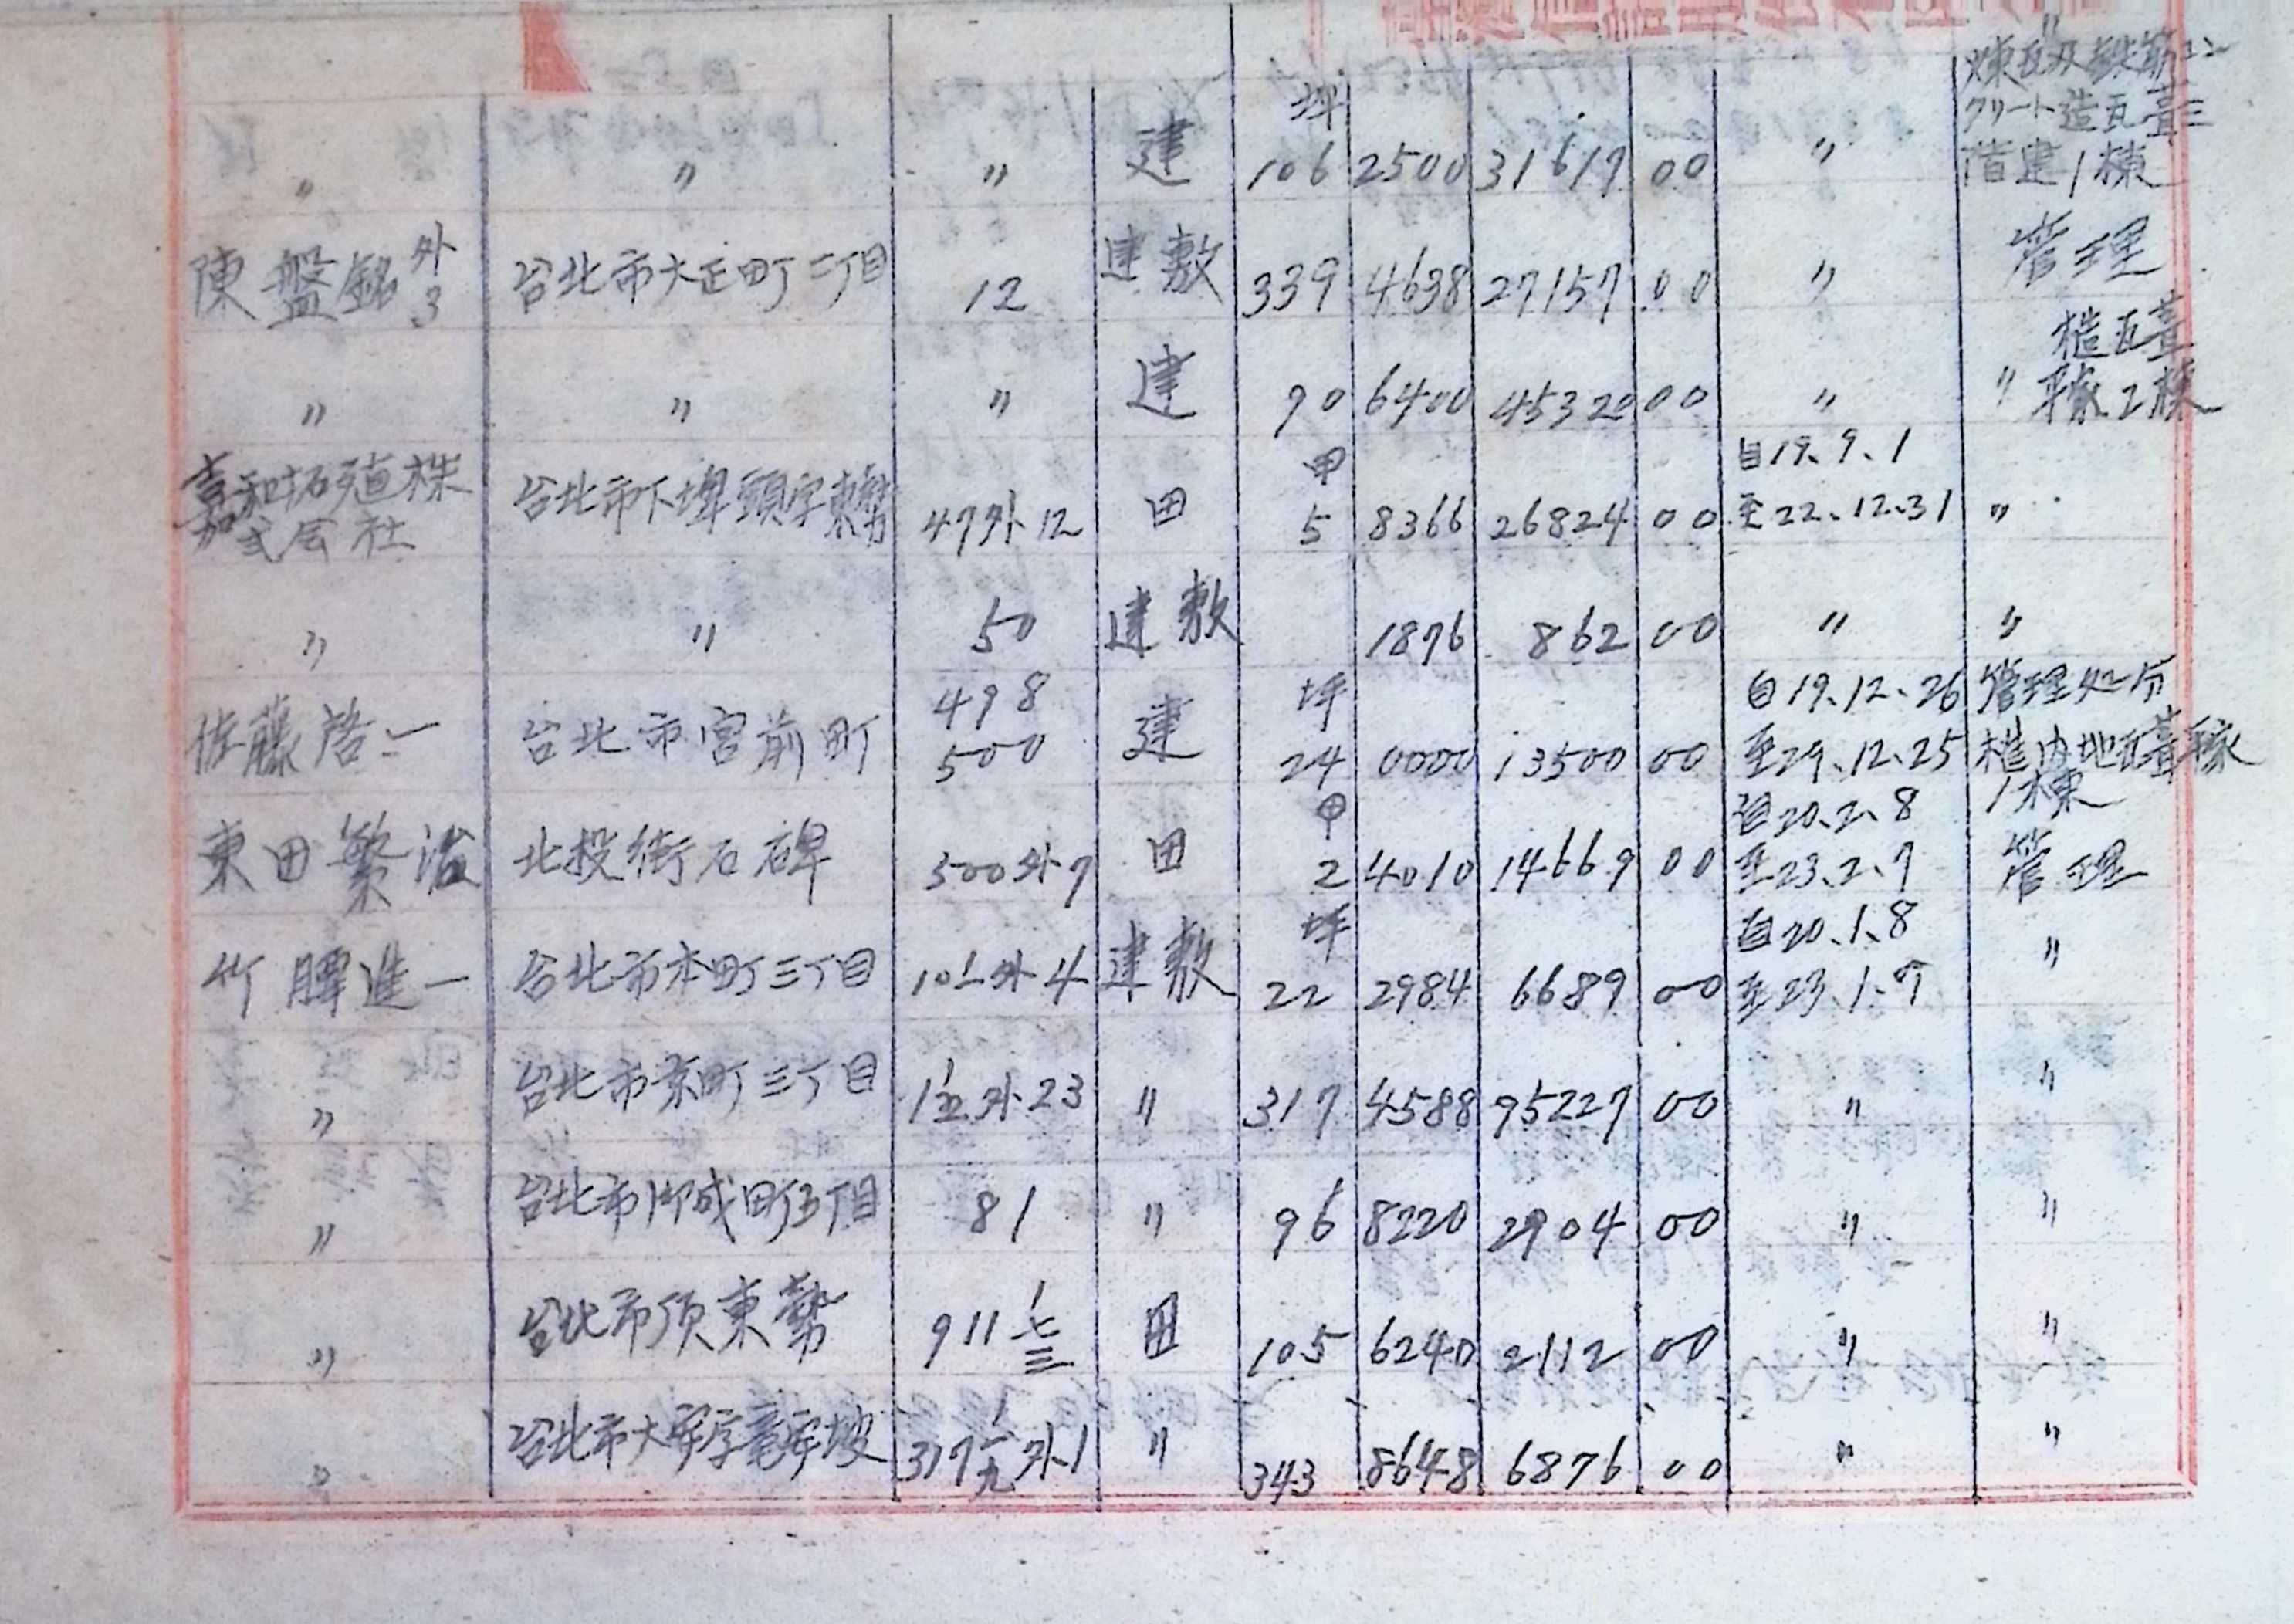 煉瓦及鉄筋コン
クリート造瓦葺三
〃 〃 〃 建 坪 106 2500 31617 00 〃 階建1棟
陳盤銘外3 台北市大正町二丁目 12 建敷 339 4638 27157 00 〃 管理
造瓦葺
〃 〃 〃 建 90 6400 45320 00 〃 〃 2棟
嘉和拓殖株式会社 台北市下埤頭字東勢 47外12 田 甲 5 8366 26824 00 自19、9、1 至22、12、31 〃
〃 〃 50 建敷 1876 862 00 〃 〃
佐藤啓一 台北市宮前町 498 500 建 坪 24 0000 13500 00 自19、12、26 至29、12、25 管理処分 内地瓦葺 1棟
東田繁治 北投街石碑 500外7 田 甲 2 4010 14669 00 自20、2、8 至23、2、7 管理
竹 進一 台北市本町三丁目 外4 建敷 坪 22 2984 6689 00 自20、1、8 至23、1、7 〃
〃 台北市京町三丁目 外23 〃 317 4588 95227 00 〃 〃
〃 台北市御成町五丁目 81 〃 96 8220 2904 00 〃 〃
〃 台北市頂東勢 911 1 七三 田 105 6240 2112 00 〃 〃
〃 台北市大字 坡 317 1 一九 外1 〃 343 8648 6876 00 〃 〃